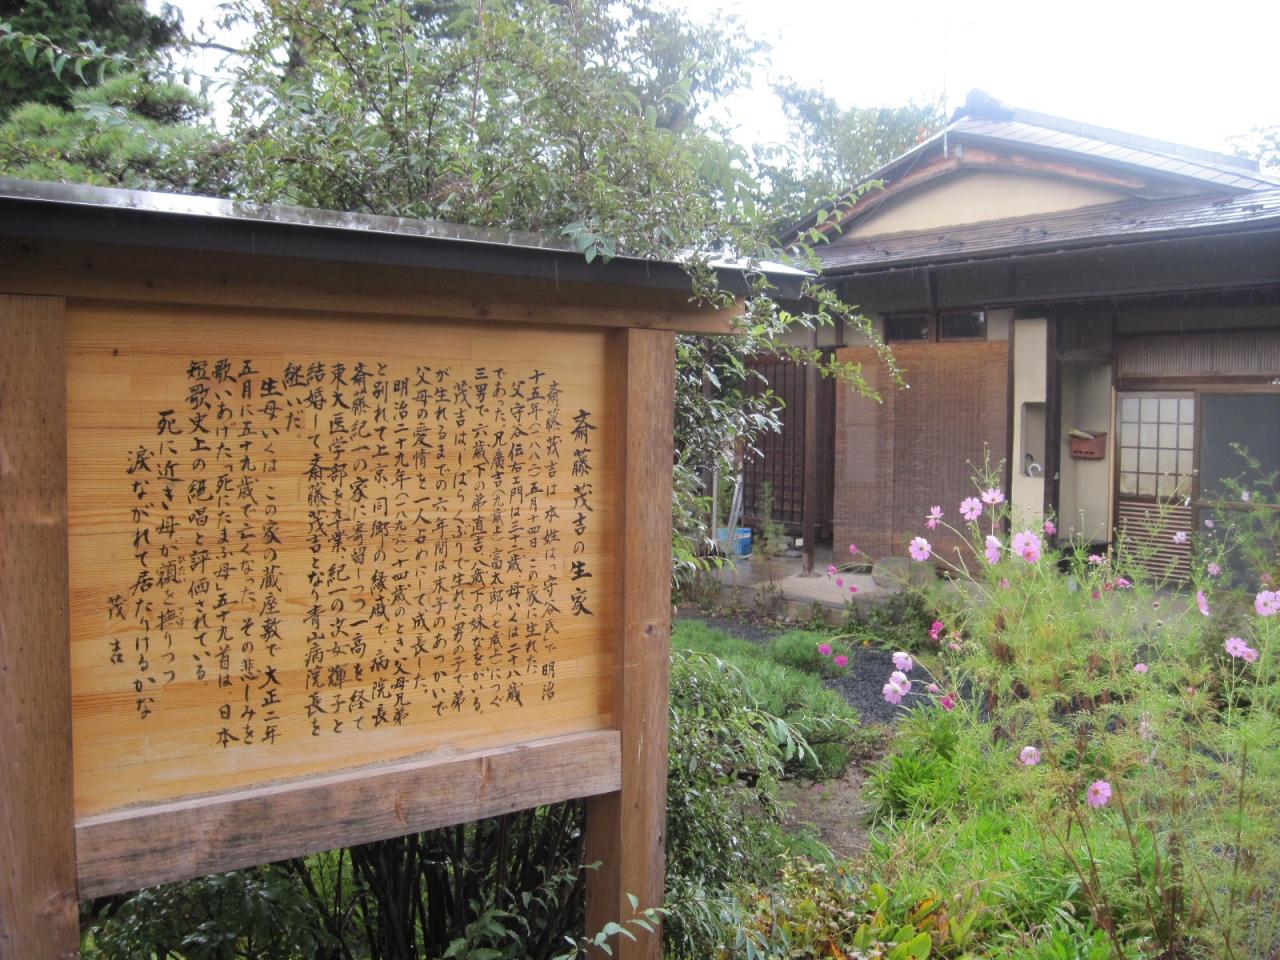 斎藤茂吉の生家
斎藤茂吉は本姓は、守谷氏で明治
十五年（一八八二）五月十四日、この家に生れた。
父守谷伝右エ門は三十二歳、母いくは二十八歳
であった。兄廣吉（九歳上）富太郎（七歳上）につぐ
三男で六歳下の弟直吉、八歳下の妹なをがいる。
茂吉は、しばらくぶりで生れた男の子で弟
が生れるまでの六年間は末子のあつかいで
父母の愛情を一人占めにして成長した。
明治二十九年（一八九六）十四歳のとき父母兄弟
と別れて上京、同郷の縁戚で病院長
斎藤紀一の家に寄留しつつ一高を経て
東大医学部を卒業、紀一の次女輝子と
結婚して斎藤茂吉となり青山病院長を
継いだ。
生母いくは、この家の蔵座敷で大正二年
五月に五十九歳で亡くなった。その悲しみを
歌いあげた「死にたまふ母」五十九首は、日本
短歌史上の絶唱と評価されている。
死に近き母が額を撫りつつ
涙ながれて居たりけるかな
茂吉